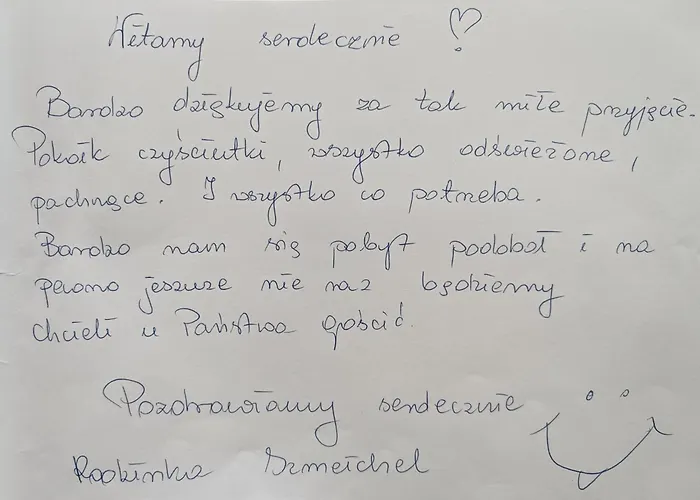 Witamy serdecznie !
Bardzo dziękujemy za tak miłe przyjęcie.
Pokoik czyściutki, wszystko odświeżone,
pachnące. I wszystko co potrzeba.
Bardzo nam się pobyt podobał i na
pewno jeszcze nie raz będziemy
chcieli u Państwa gościć.
Pozdrawiamy serdecznie
Rodzinka Szmeichel